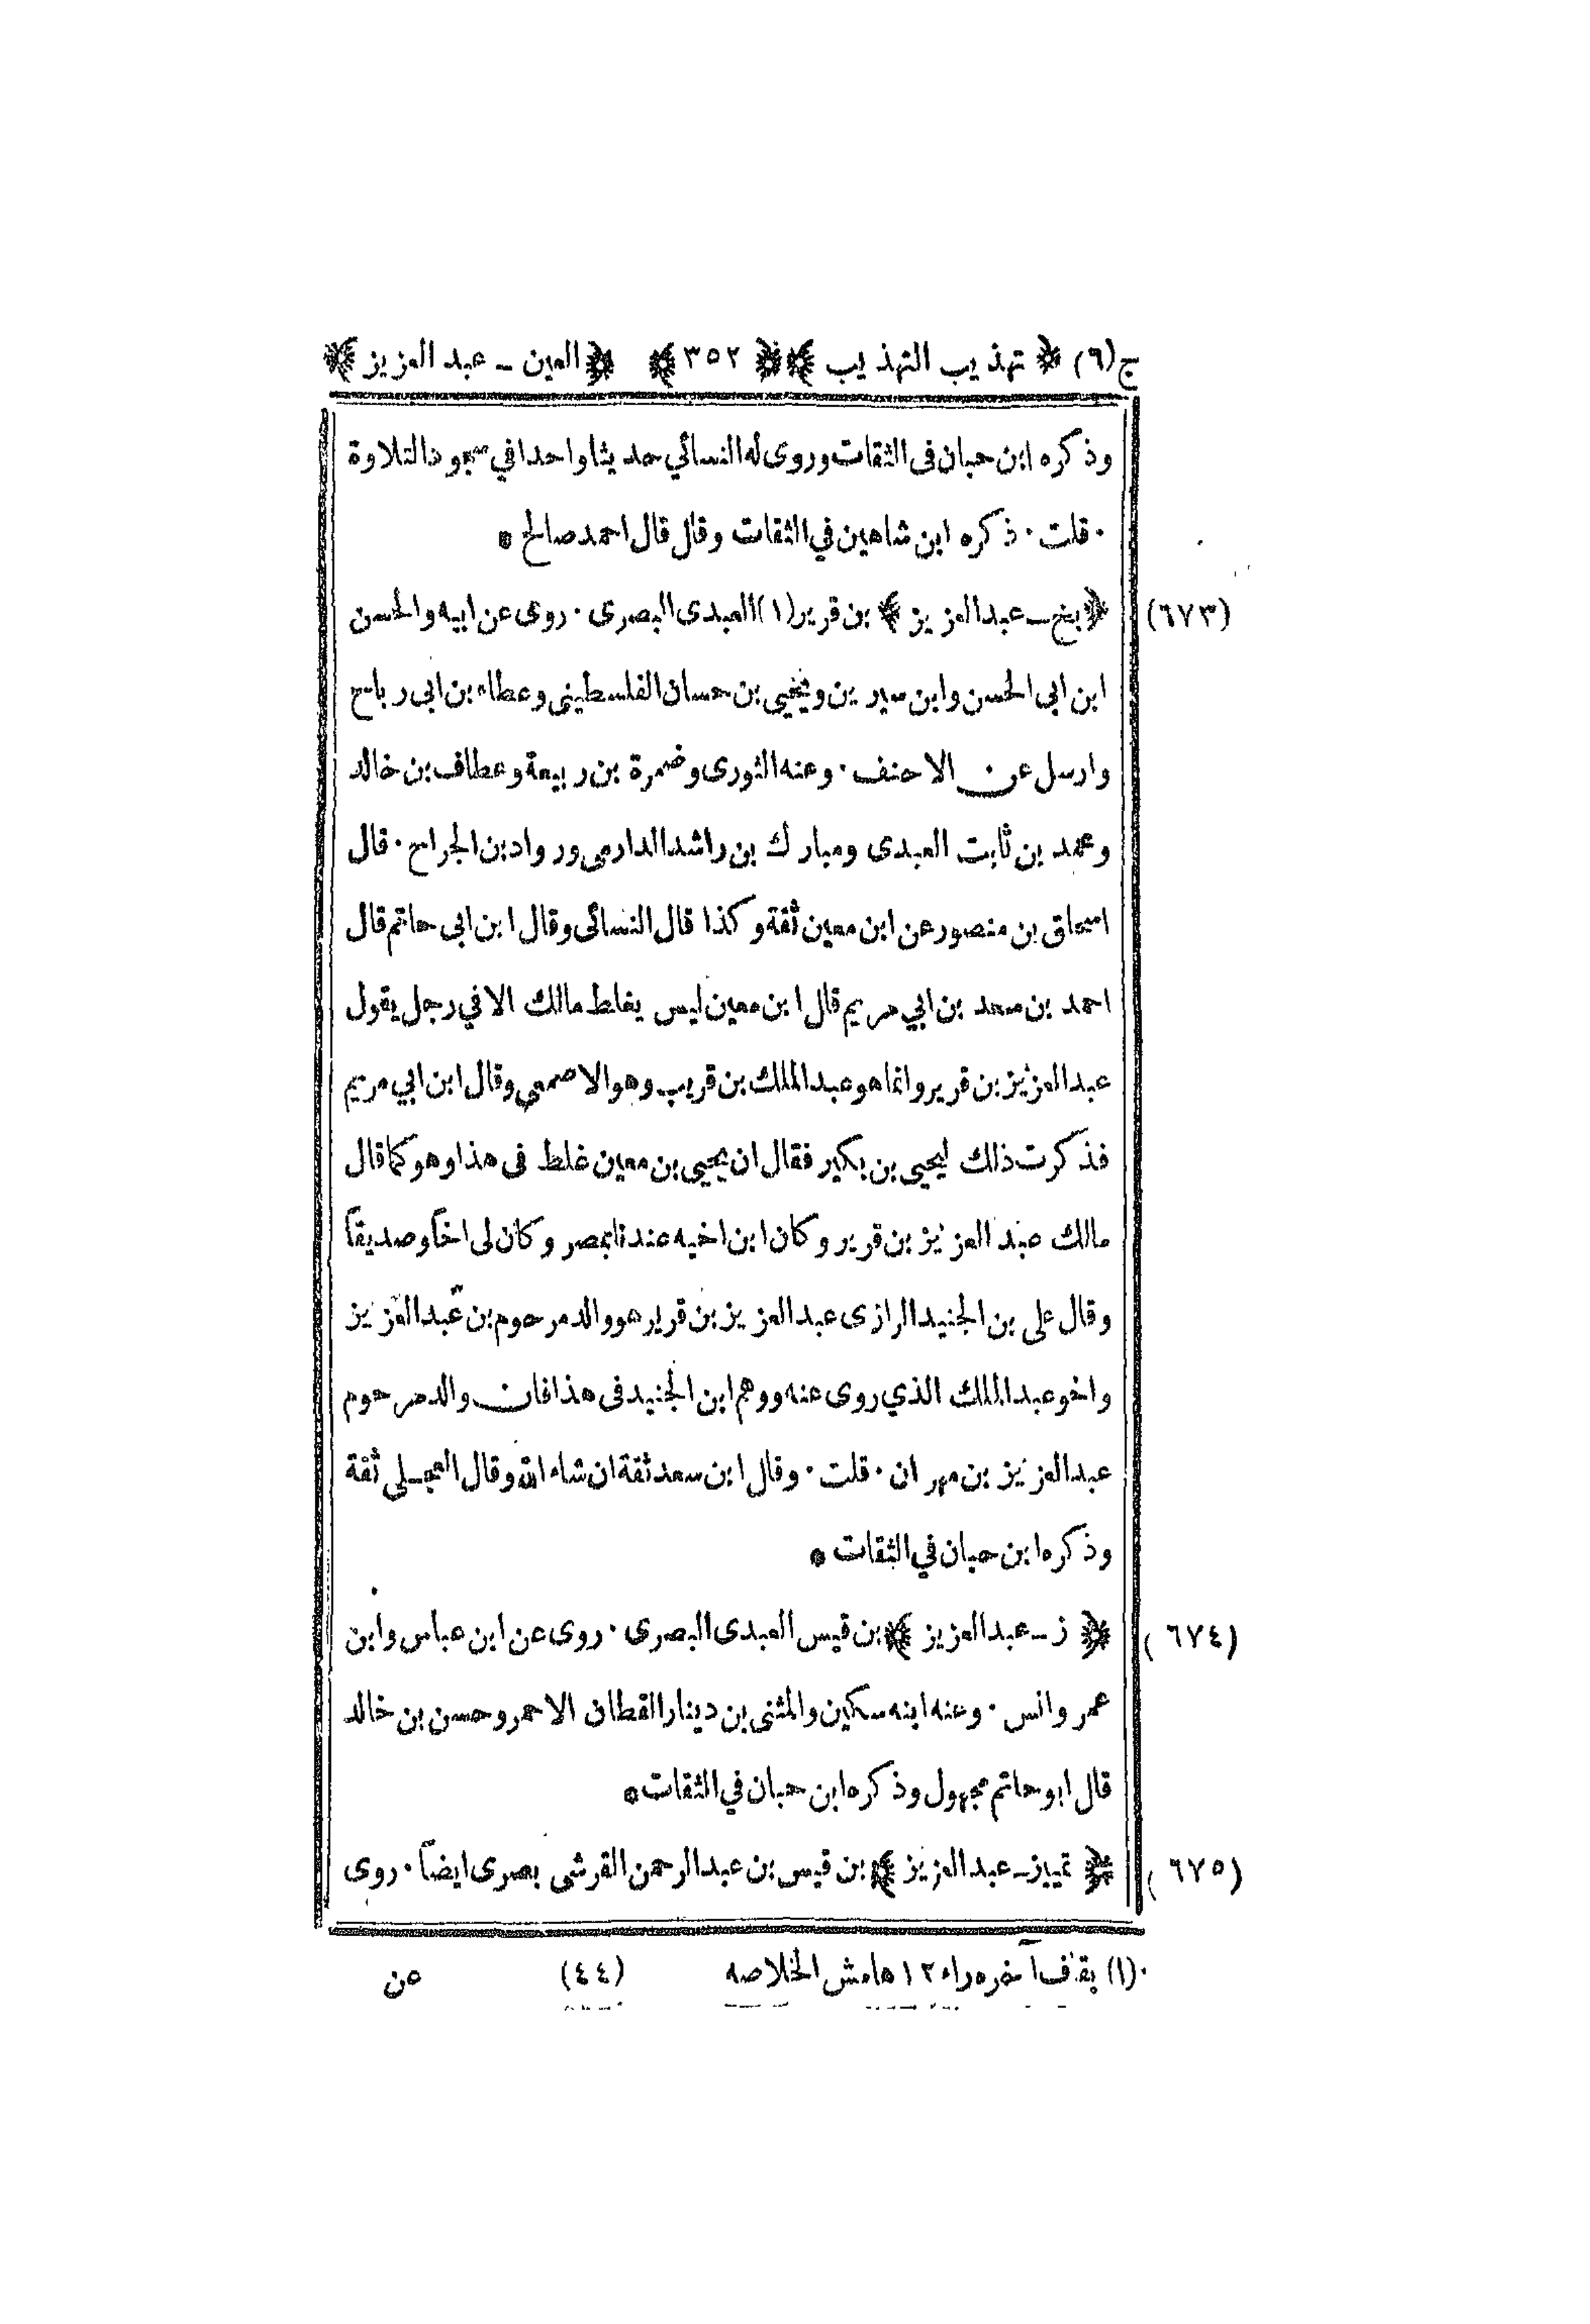 ج(٦) ﴿ تهذيب التهذيب ﴾ ﴿ ٣٥٢ ﴾ ﴿ العين ـ عبد العزيز ﴾
وذكره ابن حبان فى الثقات وروى له النسائي حديثا واحدا في سجود التلاوة
٠ قلت ٠ ذكره ابن شاهين في الثقات وقال قال احمد صالح *
(٦٧٣) ﴿ بخ ـ عبد العزيز ﴾ بن قرير (١) العبدى البصرى ٠ روى عن ابيه والحسن
ابن ابى الحسن وابن سيرين ويحيى بن حسان الفلسطينى وعطاء بن ابى رباح
وارسل عن الاحنف ٠ وعنه الثورى وضمرة بن ربيعة وعطاف بن خالد
ومحمد بن ثابت العبدى ومبارك بن راشد الدارمى ورواد بن الجراح ٠ قال
اسحاق بن منصور عن ابن معين ثقة وكذا قال النسائى وقال ابن ابى حاتم قال
احمد بن سعد بن ابي مريم قال ابن معين ليس يغلط مالك الا في رجل يقول
عبد العزيز بن قرير وانما هو عبد الملك بن قريب وهو الاصمعى وقال ابن ابي مريم
فذكرت ذلك ليحيى بن بكير فقال ان يحيى بن معين غلط فى هذا وهو كما قال
مالك عبد العزيز بن قرير وكان ابن اخيه عندنا بمصر وكان لى اخاً وصديقاً
وقال على بن الجنيد الرازى عبد العزيز بن قرير هو والد مرحوم بن عبد العزيز
واخو عبد الملك الذي روى عنه ووهم ابن الجنيد فى هذا فان والد مرحوم
عبد العزيز بن مهران ٠ قلت ٠ وقال ابن سعد ثقة ان شاء الله وقال العجلى ثقة
وذكره ابن حبان في الثقات *
(٦٧٤) ﴿ ز ـ عبد العزيز ﴾ بن قيس العبدى البصرى ٠ روى عن ابن عباس وابن
عمر وانس ٠ وعنه ابنه سكين والمثنى بن دينار القطان الاحمر وحسن بن خالد
قال ابو حاتم مجهول وذكره ابن حبان في الثقات *
(٦٧٥) ﴿ تمييز ـ عبد العزيز ﴾ بن قيس بن عبد الرحمن القرشى بصرى ايضاً ٠ روى
(١) بقاف آخره راء ١٢ هامش الخلاصه (٤٤) عن